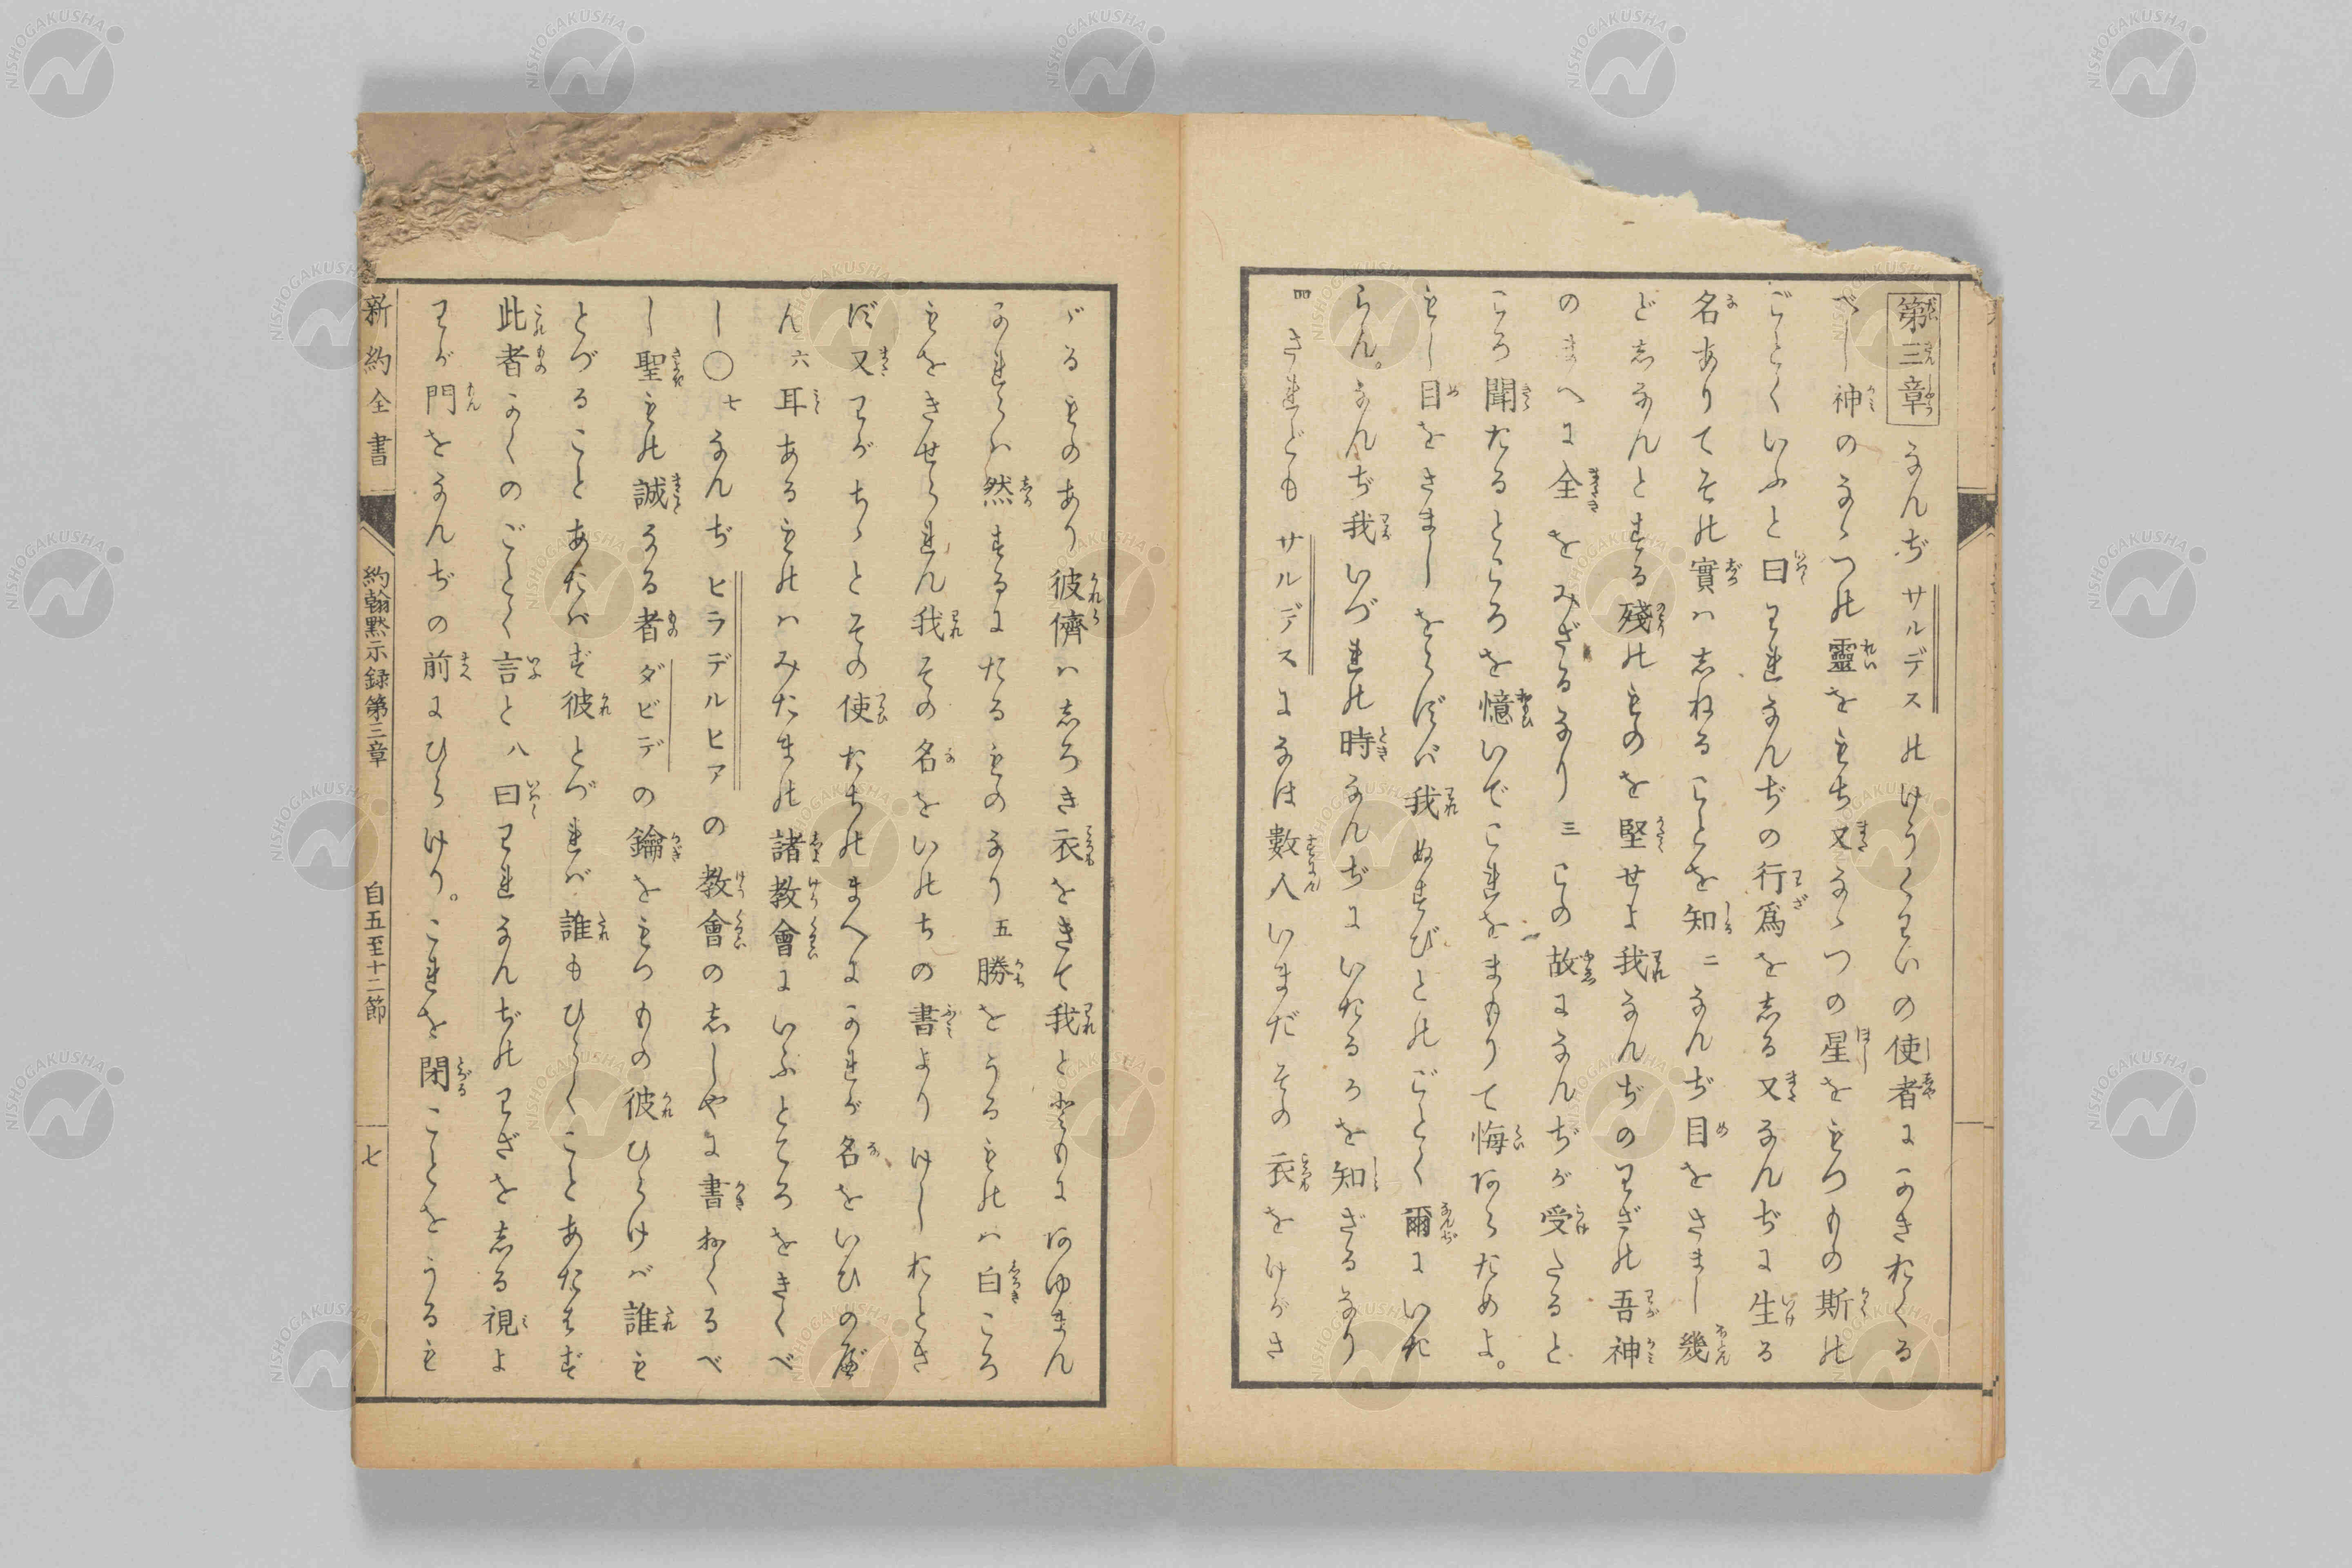 第三章 なんぢサルデスのけうくわいの使者にかきおくる
べし神のなゝつの靈をもち又なゝつの星をもつもの斯の
ごとくいふと曰われなんぢの行爲をしる又なんぢに生る
名ありてその實はしねることを知 二 なんぢ目をさまし幾
どしなんとする殘のものを堅せよ我なんぢのわざの吾神
のまへに全をみざるなり 三 この故になんぢが受たると
ころ聞たるところを憶いでこれをまもりて悔あらためよ。
もし目をさましをらずば我ぬすびとのごとく爾にいた
らん。なんぢ我いづれの時なんぢにいたるかを知ざるなり
四 されどもサルデスになほ數人いまだその衣をけがさ
ゞるものあり彼儕はしろき衣をきて我とともにあゆまん
かれらは然するにたるものなり 五 勝をうるものは白ころ
もをきせられん我その名をいのちの書よりけしおとさ
ず又わがちゝとその使たちのまへにかれが名をいひのべ
ん 六 耳あるものはみたまの諸教會にいふところをきくべ
し〇 七 なんぢヒラデルヒアの教會のししやに書おくるべ
し聖もの誠なる者ダビデの鑰をもつもの彼ひらけば誰も
とづることあたはず彼とづれば誰もひらくことあたはず
此者かくのごとく言と 八 曰われなんぢのわざをしる視よ
わが門をなんぢの前にひらけり。これを閉ることをうるも
新約全書 約翰黙示録第三章 自五至十二節 七